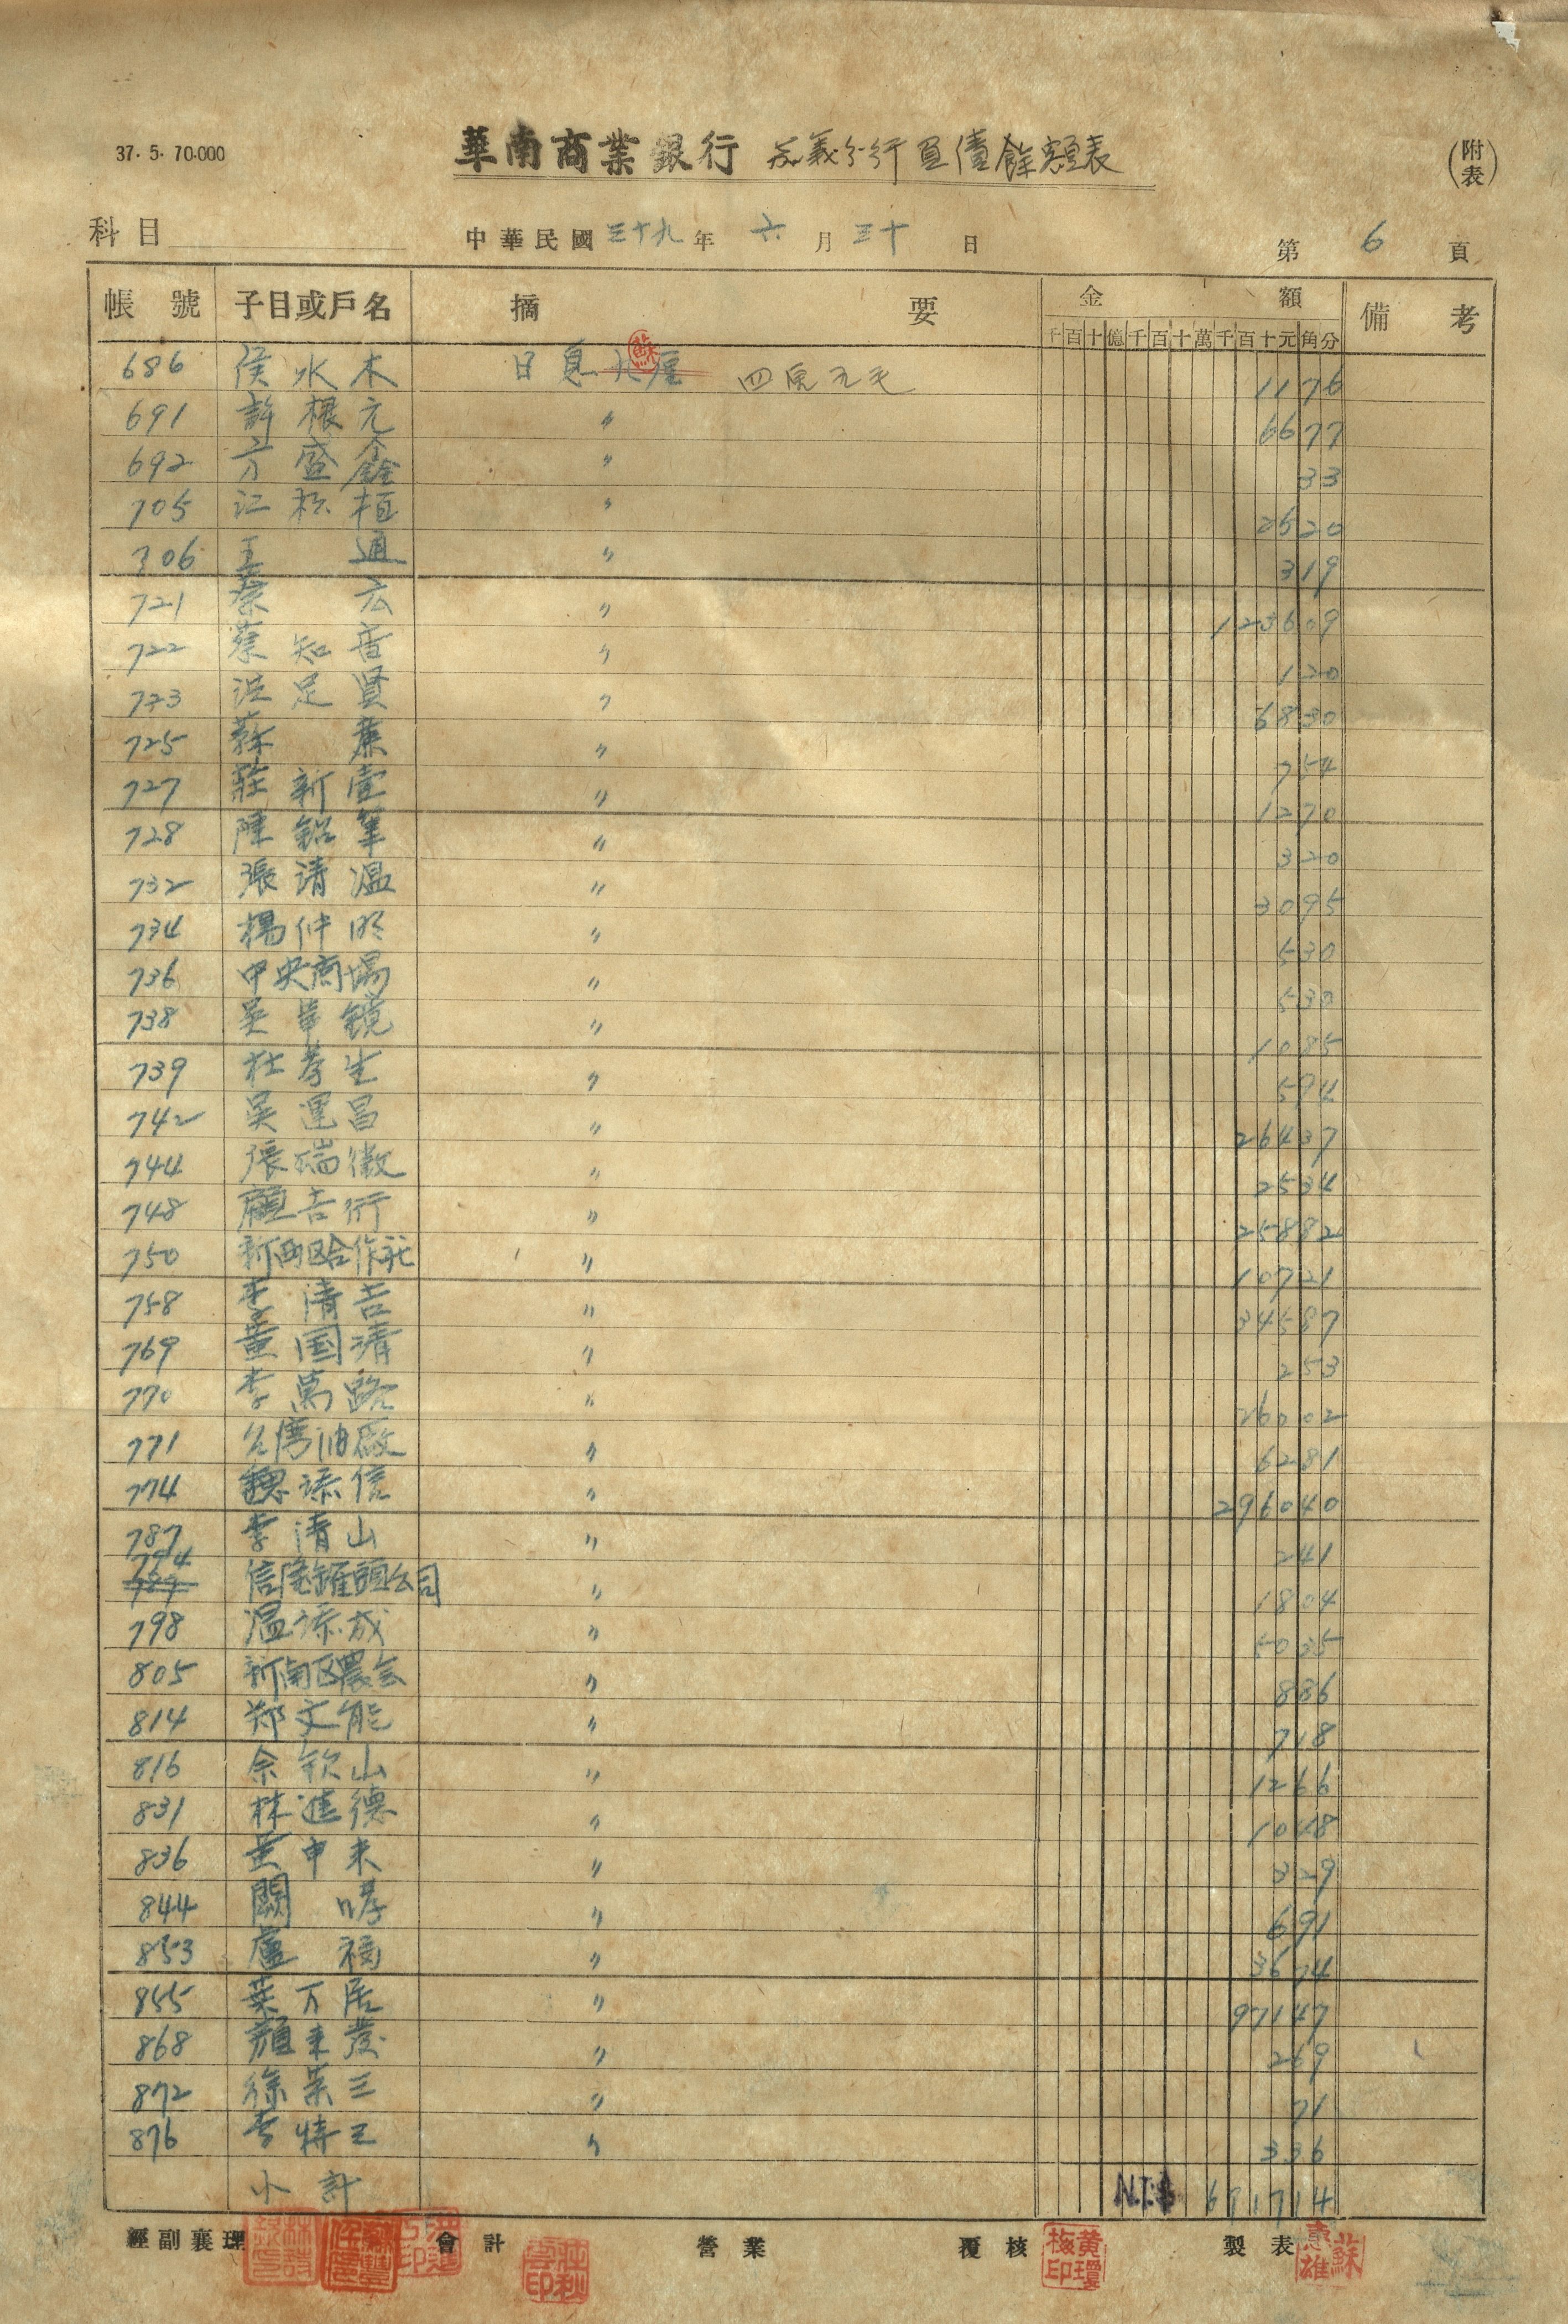 37. 5. 70.000
華南商業銀行 嘉義分行負債餘額表
(附表)
科目
中華民國三十九年 六月三十日
第 6 頁
帳號 子目或戶名 摘要 金額 備考
千百十億千百十萬千百十元角分
686 侯水木 日息 四厘九毛 1176
691 許根元 〃 6677
692 方盛鑫 〃 33
705 江松栢 〃 2520
706 王通 〃 319
721 蔡広 〃 123609
722 蔡知音 〃 120
723 洪足賢 〃 6830
725 蘇 〃 754
727 莊新壹 〃 1270
728 陳 〃 320
732 張清溫 〃 3095
734 楊仲明 〃 530
736 中央商場 〃 530
738 吳 鏡 〃 1085
739 杜孝生 〃 594
742 吳運昌 〃 26437
744 張瑞徵 〃 2534
748 吉衍 〃 25882
750 新西区合作社 〃 10721
758 李清吉 〃 34587
769 黃国清 〃 253
770 李萬路 〃 26002
771 油廠 〃 6281
774 魏添信 〃 296040
787 李清山 〃 241
794 信隆罐頭公司 〃 1804
798 溫添成 〃 5035
805 新南区農会 〃 886
814 郑文能 〃 718
816 余欽山 〃 1266
831 林進德 〃 1048
836 黃申未 〃 329
844 闕 〃 691
853 盧福 〃 3674
855 葉万居 〃 97147
868 顏来發 〃 269
872 徐榮三 〃 71
876 李特三 〃 336
小計 N.T.$ 691714
經副襄理 會計 營業 覆核 黃瓊梅印 製表 蘇惠雄